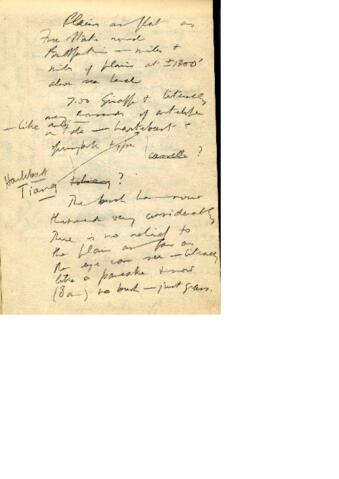 Plains as flat as
Free State round
Bultfontein — miles &
miles of plain at ±1800'
above sea level
7.30 Giraffe & literally
many thousands of antelope
— like
a tide — hartebeest &
springbok type
gazelle ?
Hartebeest
Tiang ?
The bush has now
thinned very considerably
There is no relief to
the plain as far as
the eye can see — literally
like a pancake & now
(8 am) no bush — just grass.